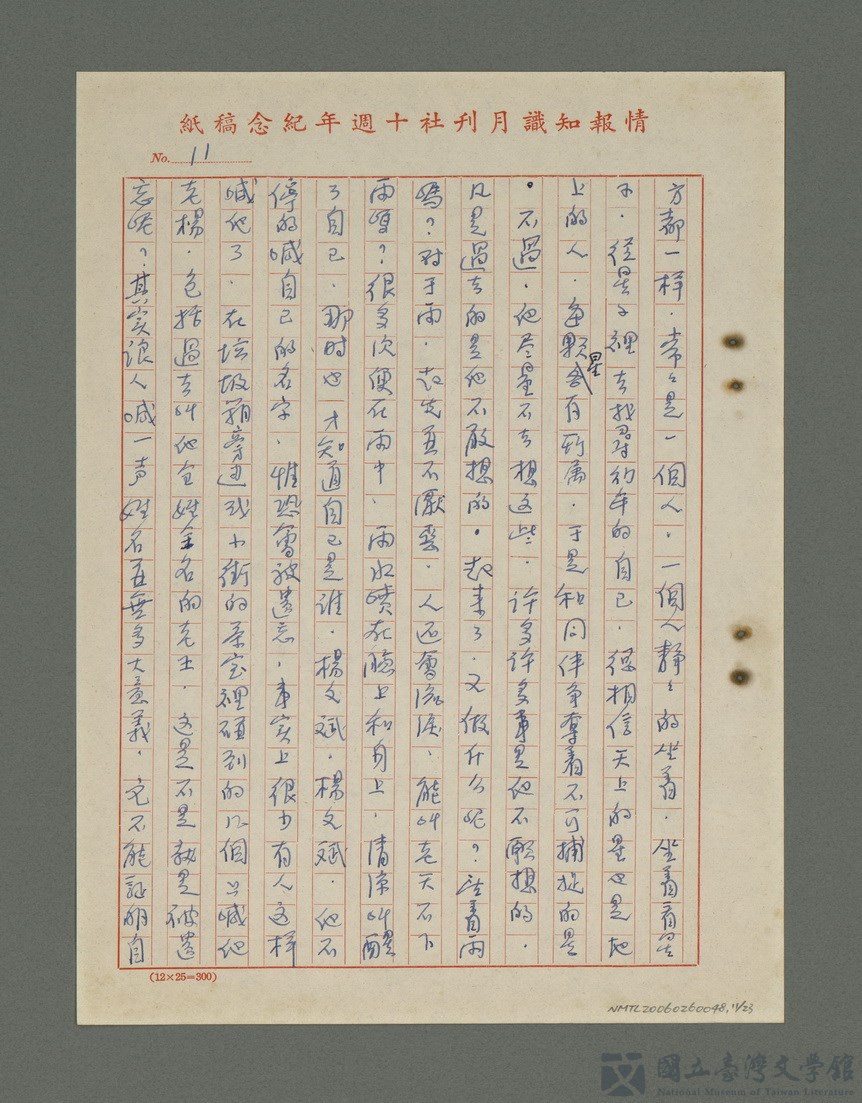 情報知識月刊社十週年紀念稿紙
No. 11
方都一样．常々是一個人．一個人靜々的坐着．坐着看星
子．從星子裡去找尋幼年的自己．很相信天上的星也是地
上的人．每顆星会有所属．于是和同伴争奪着不可捕捉的星
。不過．他尽量不去想这些．许多许多事是他不願想的．
凡是過去的是他不敢想的。起来了．又做什么呢？望着雨
嗎？对于雨．起先並不厭惡．人还會流淚．能叫老天不下
雨嗎？很多次便在雨中．雨水噴在臉上和身上．清凉叫醒
了自己．那时也才知道自己是谁．楊文斌．楊文斌．他不
停的喊自己的名字．惟恐會被遗忘．事实上很少有人这样
喊他了．在垃圾箱旁边或小街的茶室裡碰到的几個只喊他
老楊．包括過去叫他全姓全名的老王．这是不是就是被遗
忘呢？其实讓人喊一声姓名並無多大意義．它不能証明自
(12×25=300)
NMTL20060260048,11/23
國立臺灣文學館
National Museum of Taiwan Literature